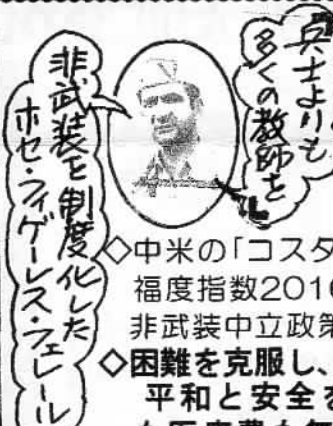 兵士よりも
多くの教師を
非武装を制度化した
ホセ・フィゲーレス・フェレール
◇中米の「コスタ
福度指数2016
非武装中立政策
◇困難を克服し、
平和と安全を